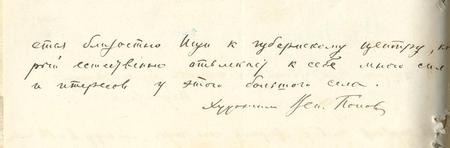 ется близостью Ищи к губернскому центру, ко
рый естественно отвлекает к себе много сил
и интересов у этого большого села.
Художник Вен. Попов